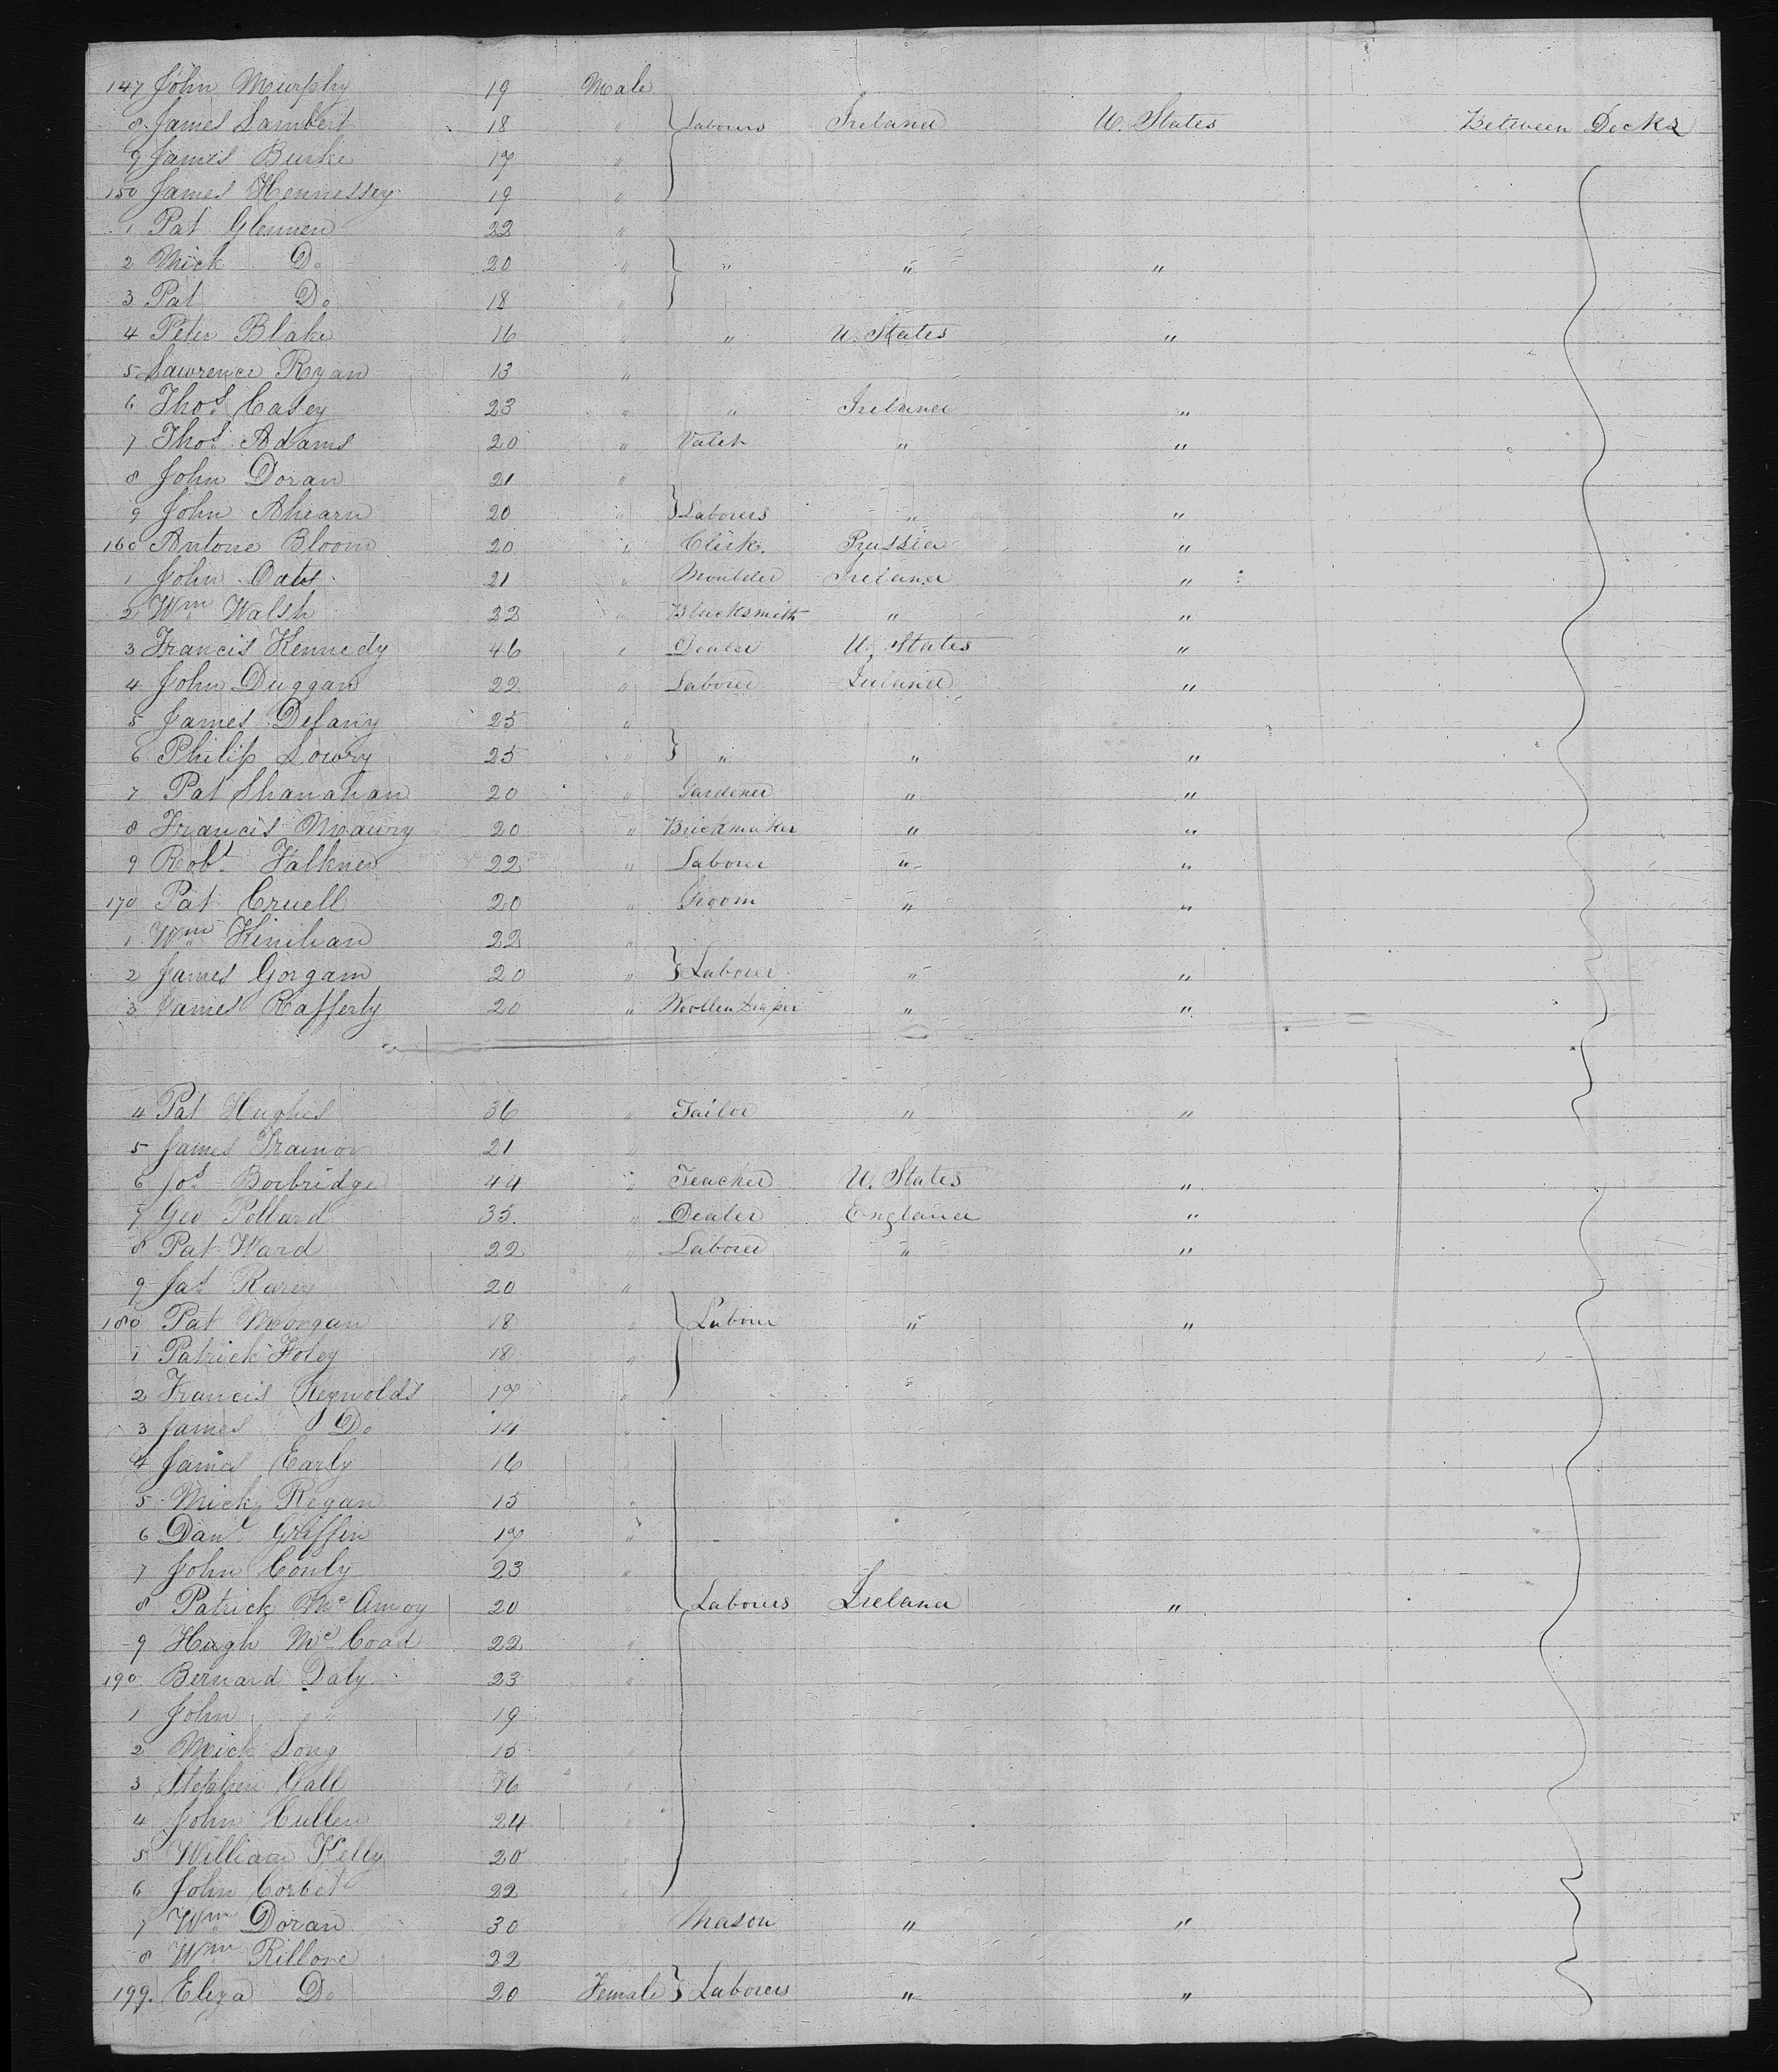 147 John Murphy 19 Male
8 James Lambert 18 " Labourers Ireland U. States Between Decks
9 James Burke 17 "
150 James Hennessey 19 "
1 Pat Glennen 22 "
2 Mick Do 20 " " " "
3 Pat Do 18 "
4 Peter Blake 16 " " U. States "
5 Lawrence Ryan 13 "
6 Thos Casey 23 " " Ireland "
7 Thos Adams 20 " " "
8 John Doran 21 "
9 John Ahearn 20 " Laborers " "
160 Antone Bloom 20 " Clerk. Prussia "
1 John Oats 21 " Moulder Ireland "
2 Wm Walsh 22 " Blacksmith " "
3 Francis Kennedy 46 " Dealer U. States "
4 John Duggan 22 " Laborer Ireland "
5 James Delany 25 "
6 Philip Lowry 25 " " "
7 Pat Shanahan 20 " Gardener " "
8 Francis 20 " Brickmaker " "
9 Robt Falkner 22 " Labour " "
170 Pat Cruell 20 " Groom " "
1 Wm Kinihan 22 "
2 James Gorgam 20 " Laborer " "
3 James Rafferty 20 " Woollen Draper " "
4 Pat Hughes 36 " Tailor " "
5 James Trainor 21 "
6 Jos Borbridge 44 " Teacher U. States "
7 Geo Pollard 35. " Dealer England "
8 Pat Ward 22 " Laborer " "
9 Jas 20 "
180 Pat Morgan 18 " Labour " "
1 Patrick Foley 18 "
2 Francis Reynolds 17 " "
3 James Do 14 "
4 James Early 16
5 Mick Regan 15 "
6 Danl Griffin 17 "
7 John Conly 23 "
8 Patrick McAmoy 20 Labourers Ireland "
9 Hugh McCoad 22 "
190 Bernard Daly 23 "
1 John " 19
2 Mick Long 15
3 Stephen Gall 16 "
4 John Cullen 24 "
5 William Kelly 20 "
6 John Corbet 22 "
7 Wm Doran 30 " Mason " "
8 Wm 22
199. Eliza Do 20 Female Laborers " "